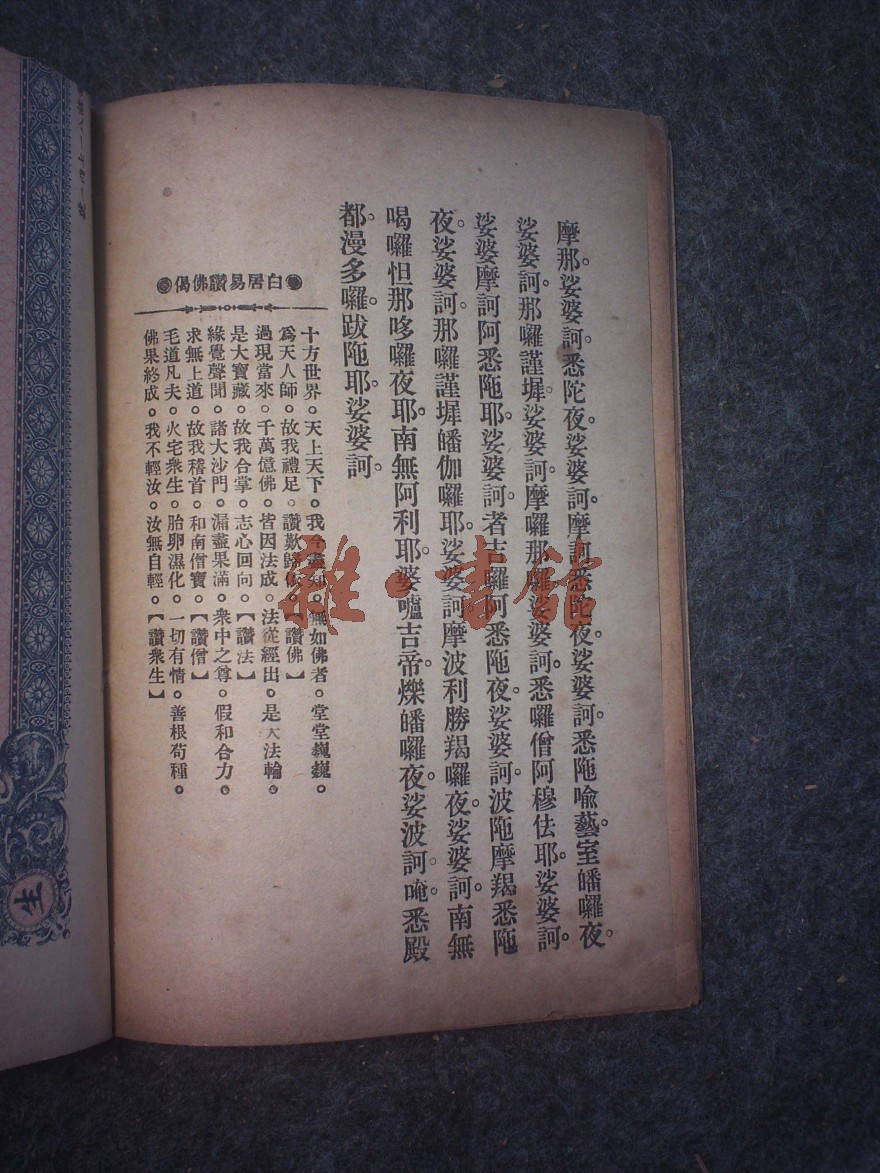 摩那。娑婆訶。悉陀夜。娑婆訶。摩訶悉陁夜。娑婆訶。悉陁喩藝。室皤囉夜。
娑婆訶。那囉謹墀。娑婆訶。摩囉那囉。娑婆訶。悉囉僧阿穆佉耶。娑婆訶。
娑婆摩訶阿悉陁耶。娑婆訶。者吉囉阿悉陁夜。娑婆訶。波陁摩羯悉陁
夜。娑婆訶。那囉謹墀皤伽囉耶。娑婆訶。摩波利勝羯囉夜。娑婆訶。南無
喝囉怛那哆囉夜耶。南無阿利耶。婆嚧吉帝。爍皤囉夜。娑波訶。唵。悉殿
都。漫多囉。跋陁耶。娑婆訶。
白居易讚佛偈
十方世界。天上天下。我今盡知。無如佛者。堂堂巍巍。
爲天人師。故我禮足。讚歎歸依。【讚佛】
過現當來。千萬億佛。皆因法成。法從經出。是大法輪。
是大寶藏。故我合掌。志心回向。【讚法】
緣覺聲聞。諸大沙門。漏盡果滿。衆中之尊。假和合力。
求無上道。故我稽首。和南僧寶。【讚僧】
毛道凡夫。火宅衆生。胎卵濕化。一切有情。善根苟種。
佛果終成。我不輕汝。汝無自輕。【讚衆生】
雜·書館
生